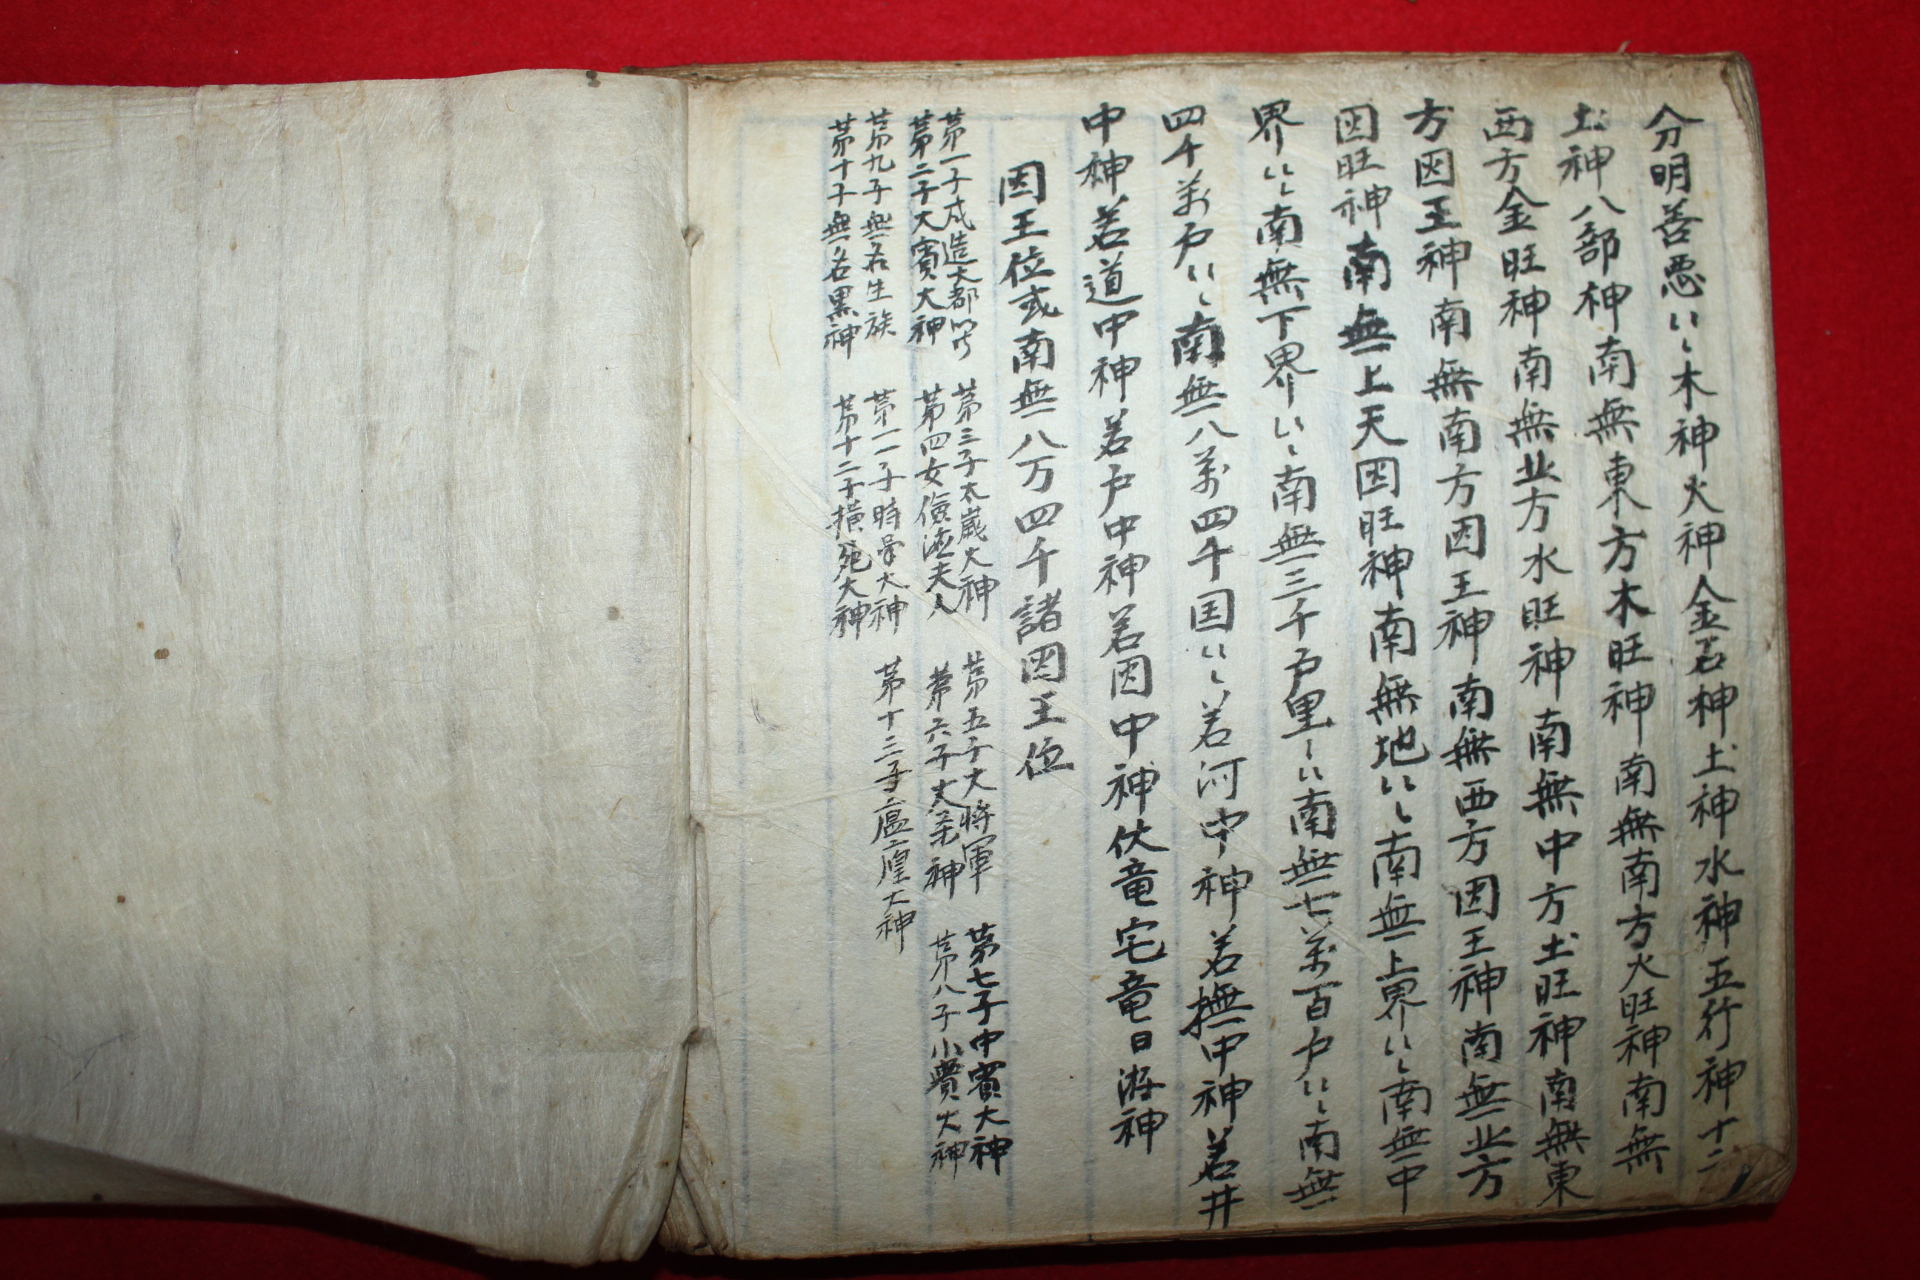 分明善悪〻木神火神金若神土神水神五行神十二
土神八部神南無東方木旺神南無南方火旺神南無
西方金旺神南無北方水旺神南無中方土旺神南無東
方因王神南無南方因王神南無西方因王神南無北方
因旺神南無上天因旺神南無地〻南無上界〻南無中
界〻南無下界〻南無三千戶里〻南無七万百戶〻南無
四千万戶〻南無八万四千国〻若河中神若撫中神若井
中神若道中神若戶中神若因中神伏竜宅竜日游神
因王位或南無八万四千諸因王位
苐一子成造大都
苐三子太歲大神
苐五子大將軍
苐七子中賓大神
苐二子大賓大神
苐四女儉德夫人
苐六子大杀神
苐八子小賓大神
苐九子無名生族
苐一一子時大神
苐十三子瘟㾮大神
苐十子無名黑神
苐十二子橫死大神